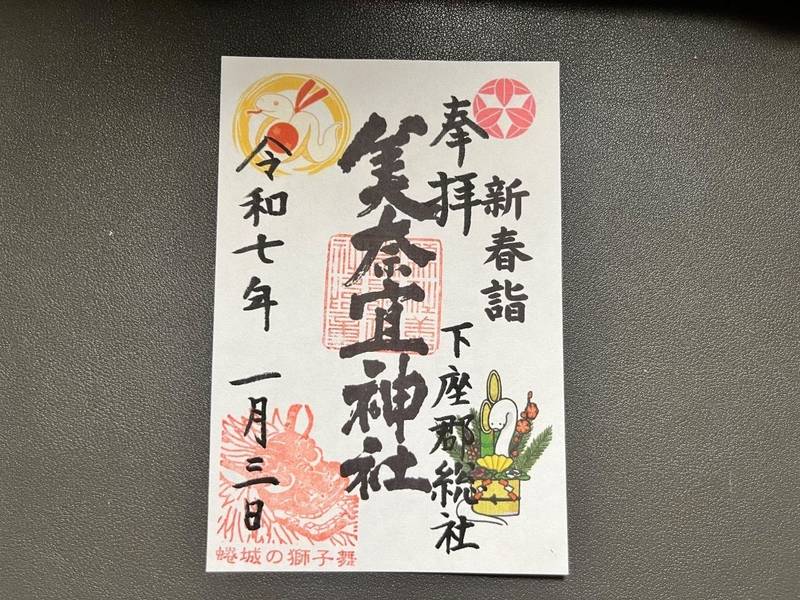 奉拝
新春詣
下座郡総社
美奈宜神社
令和七年 一月三日
蜷城の獅子舞